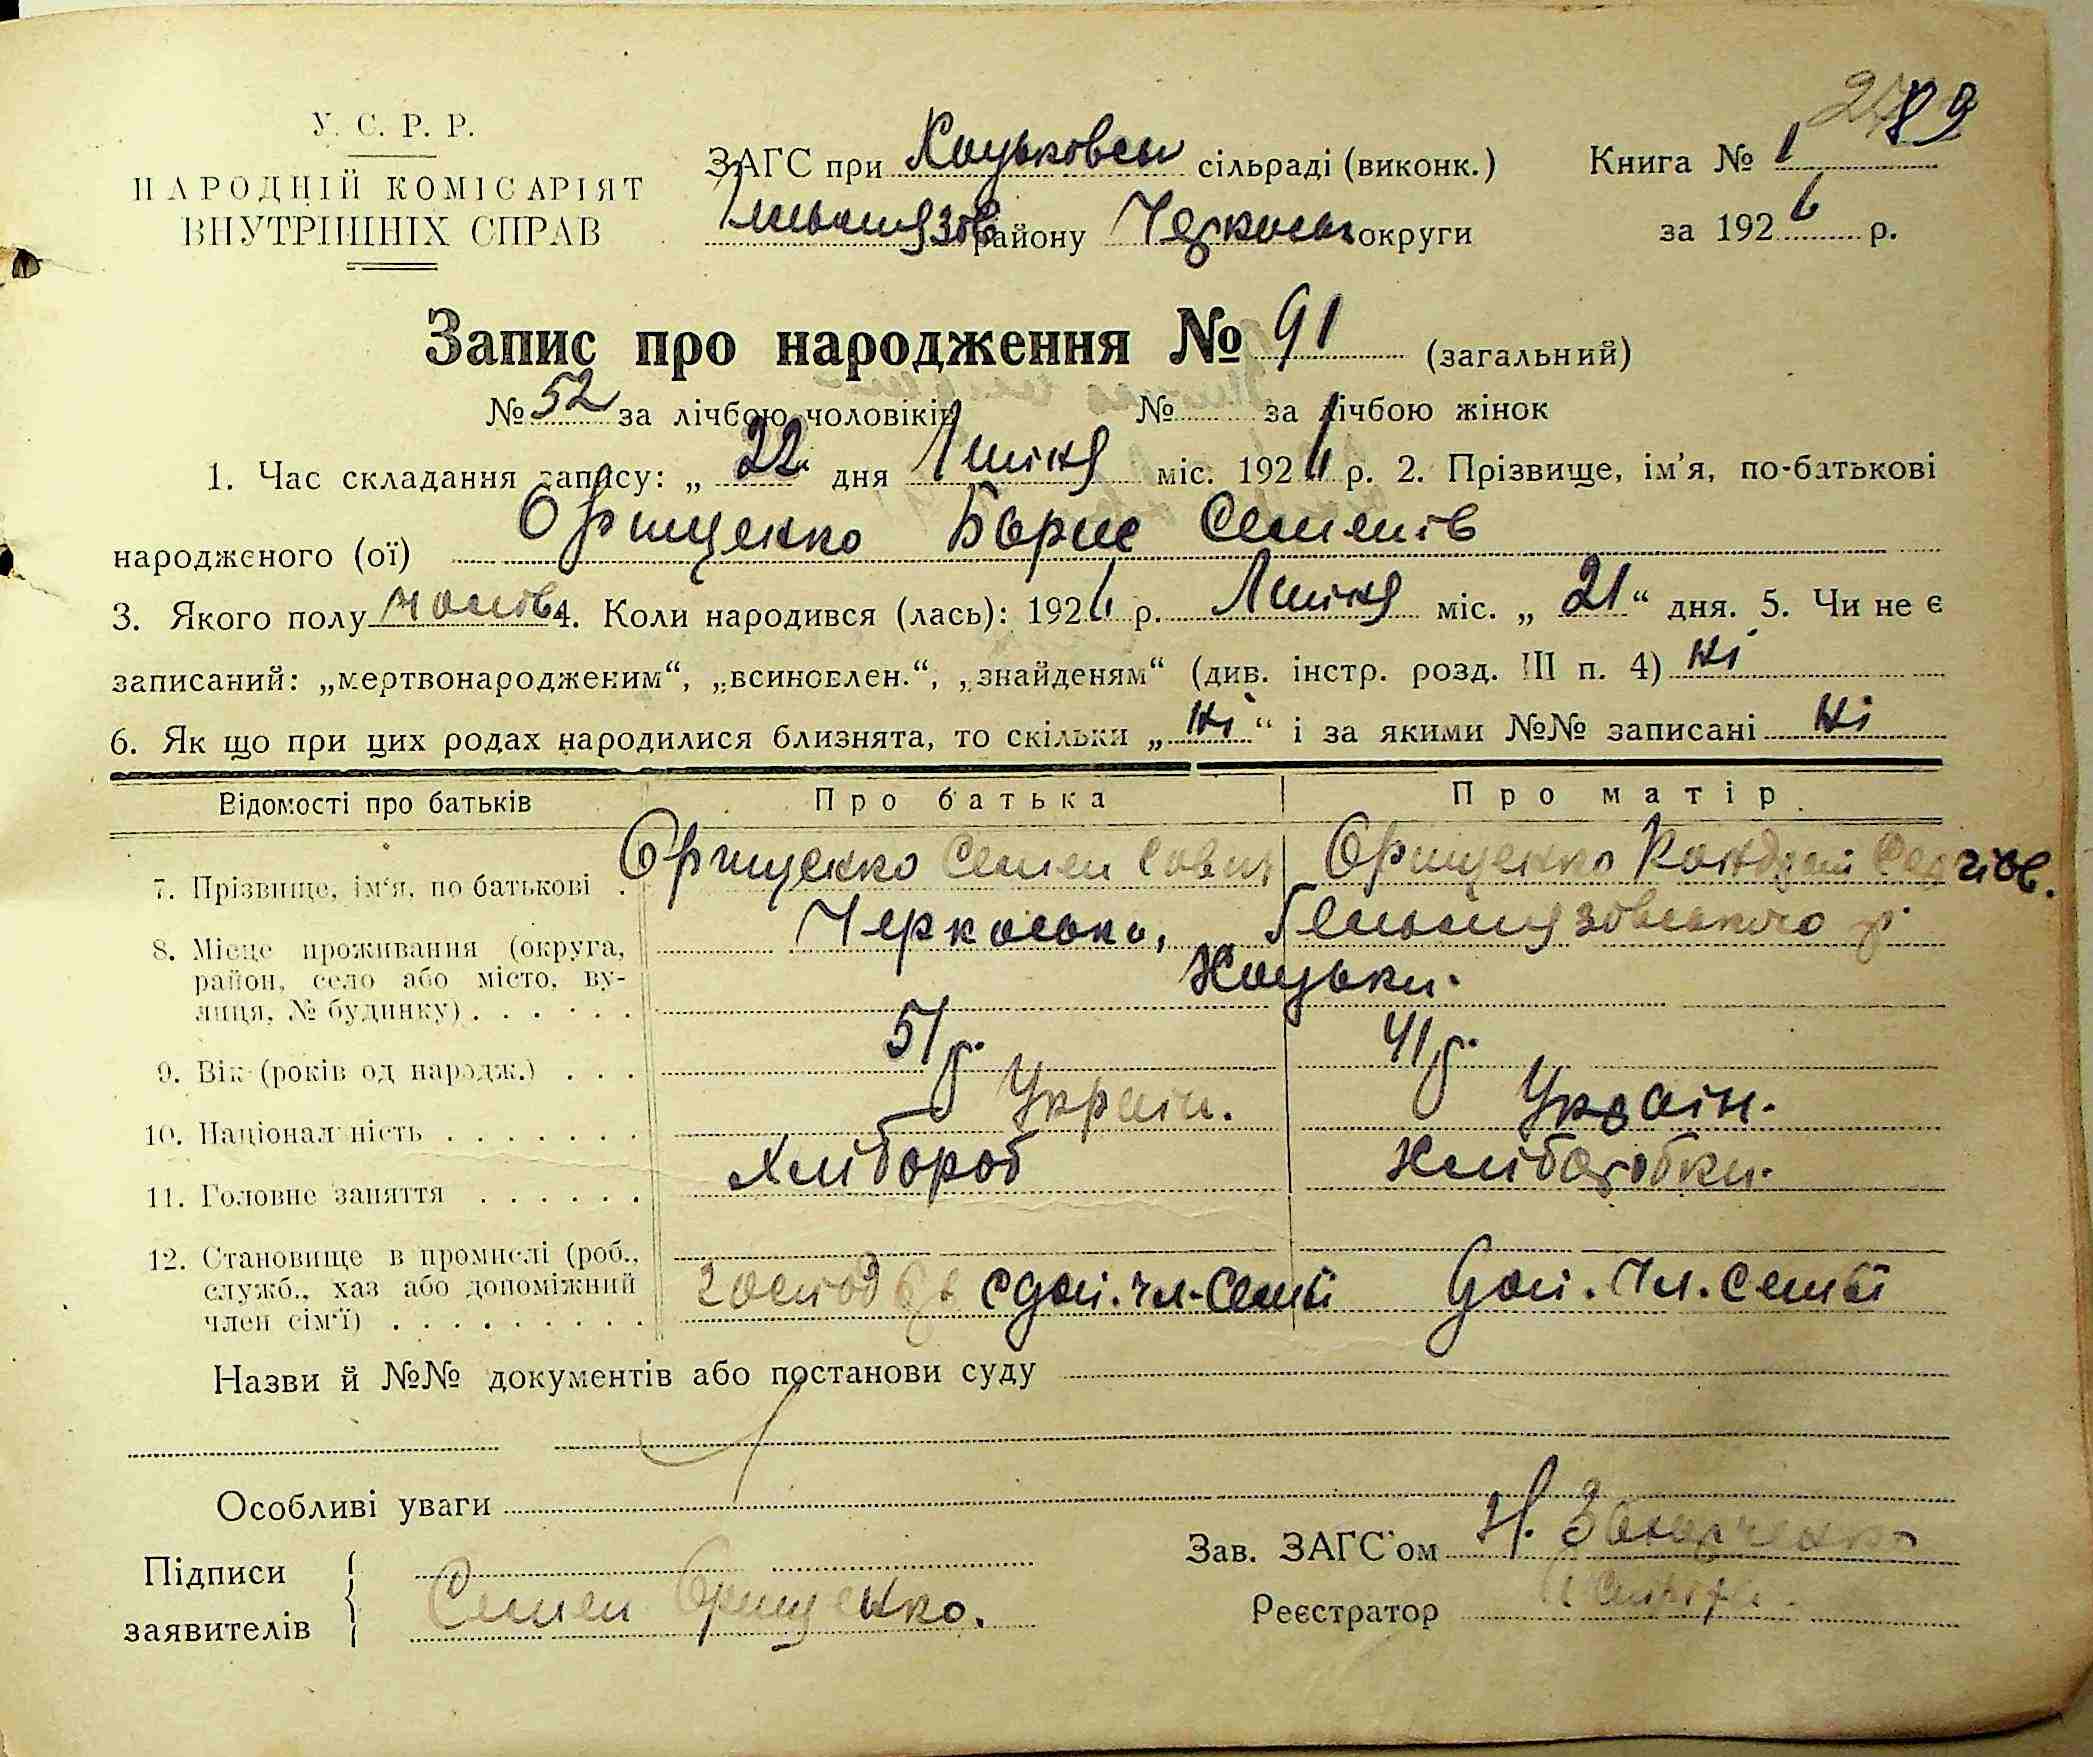 89
У. С. Р. Р.
НАРОДНІЙ КОМІСАРІЯТ
ВНУТРІШНІХ СПРАВ
ЗАГС при Хоцьковськ сільраді (виконк.) Книга № 1
району Черкаськ округи за 1926 р.
Запис про народження № 91 (загальний)
№ 52 за лічбою чоловіків № за лічбою жінок
1. Час складання запису: „ 22 " дня Липня міс. 1926 р. 2. Прізвище, ім'я, по-батькові
народженого (ої) Орищенко Борис Семенів
3. Якого полу чолов 4. Коли народився (лась): 1926 р. Липня міс. „ 21 “ дня. 5. Чи не є
записаний: „мертвонародженим“, „всиновлен.“, „знайденям“ (див. інстр. розд. III п. 4) ні
6. Як що при цих родах народилися близнята, то скільки „ ні “ і за якими №№ записані ні
Відомості про батьків Про батька Про матір
7. Прізвище, ім'я, по батькові . Орищенко Семен Савич Орищенко Сергіов.
8. Місце проживання (округа, район, село або місто, вулиця, № будинку) . . . . . . Черкаська, Гельмязовського р.
Хоцьки.
9. Вік (років од народж.) . . . 51 р. 41 р.
10. Національність . . . . . . . Україн. Україн.
11. Головне заняття . . . . . . Хлібороб Хліборобка.
12. Становище в промислі (роб., служб., хаз або допоміжний член сім'ї) . . . . . . . . . господ з доп. чл. семьі доп. чл. семьі
Назви й №№ документів або постанови суду
Особливі уваги
Підписи заявителів Семен Орищенко.
Зав. ЗАГС'ом
Реєстратор